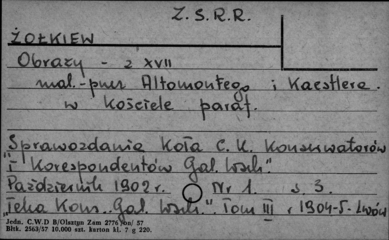 Z. S. R. R.
ŻOŁKIEW
Obrazy - z XVII
mal.-przez Altomontego i Kaestlera.
w kościele paraf.
Sprawozdania Koła C. K. Konserwatorów
"i Korespondentów Gal. Wsch."
Październik 1902 r. Nr 1. s. 3.
"Teka Kons. Gal. Wsch." Tom III, 1904-5. Lwów
Jedn. C.W.D B/Olsztyn Zam 2776 /on/ 57
Bltk. 2563/57 10.000 szt. karton kl. 7 g 220.